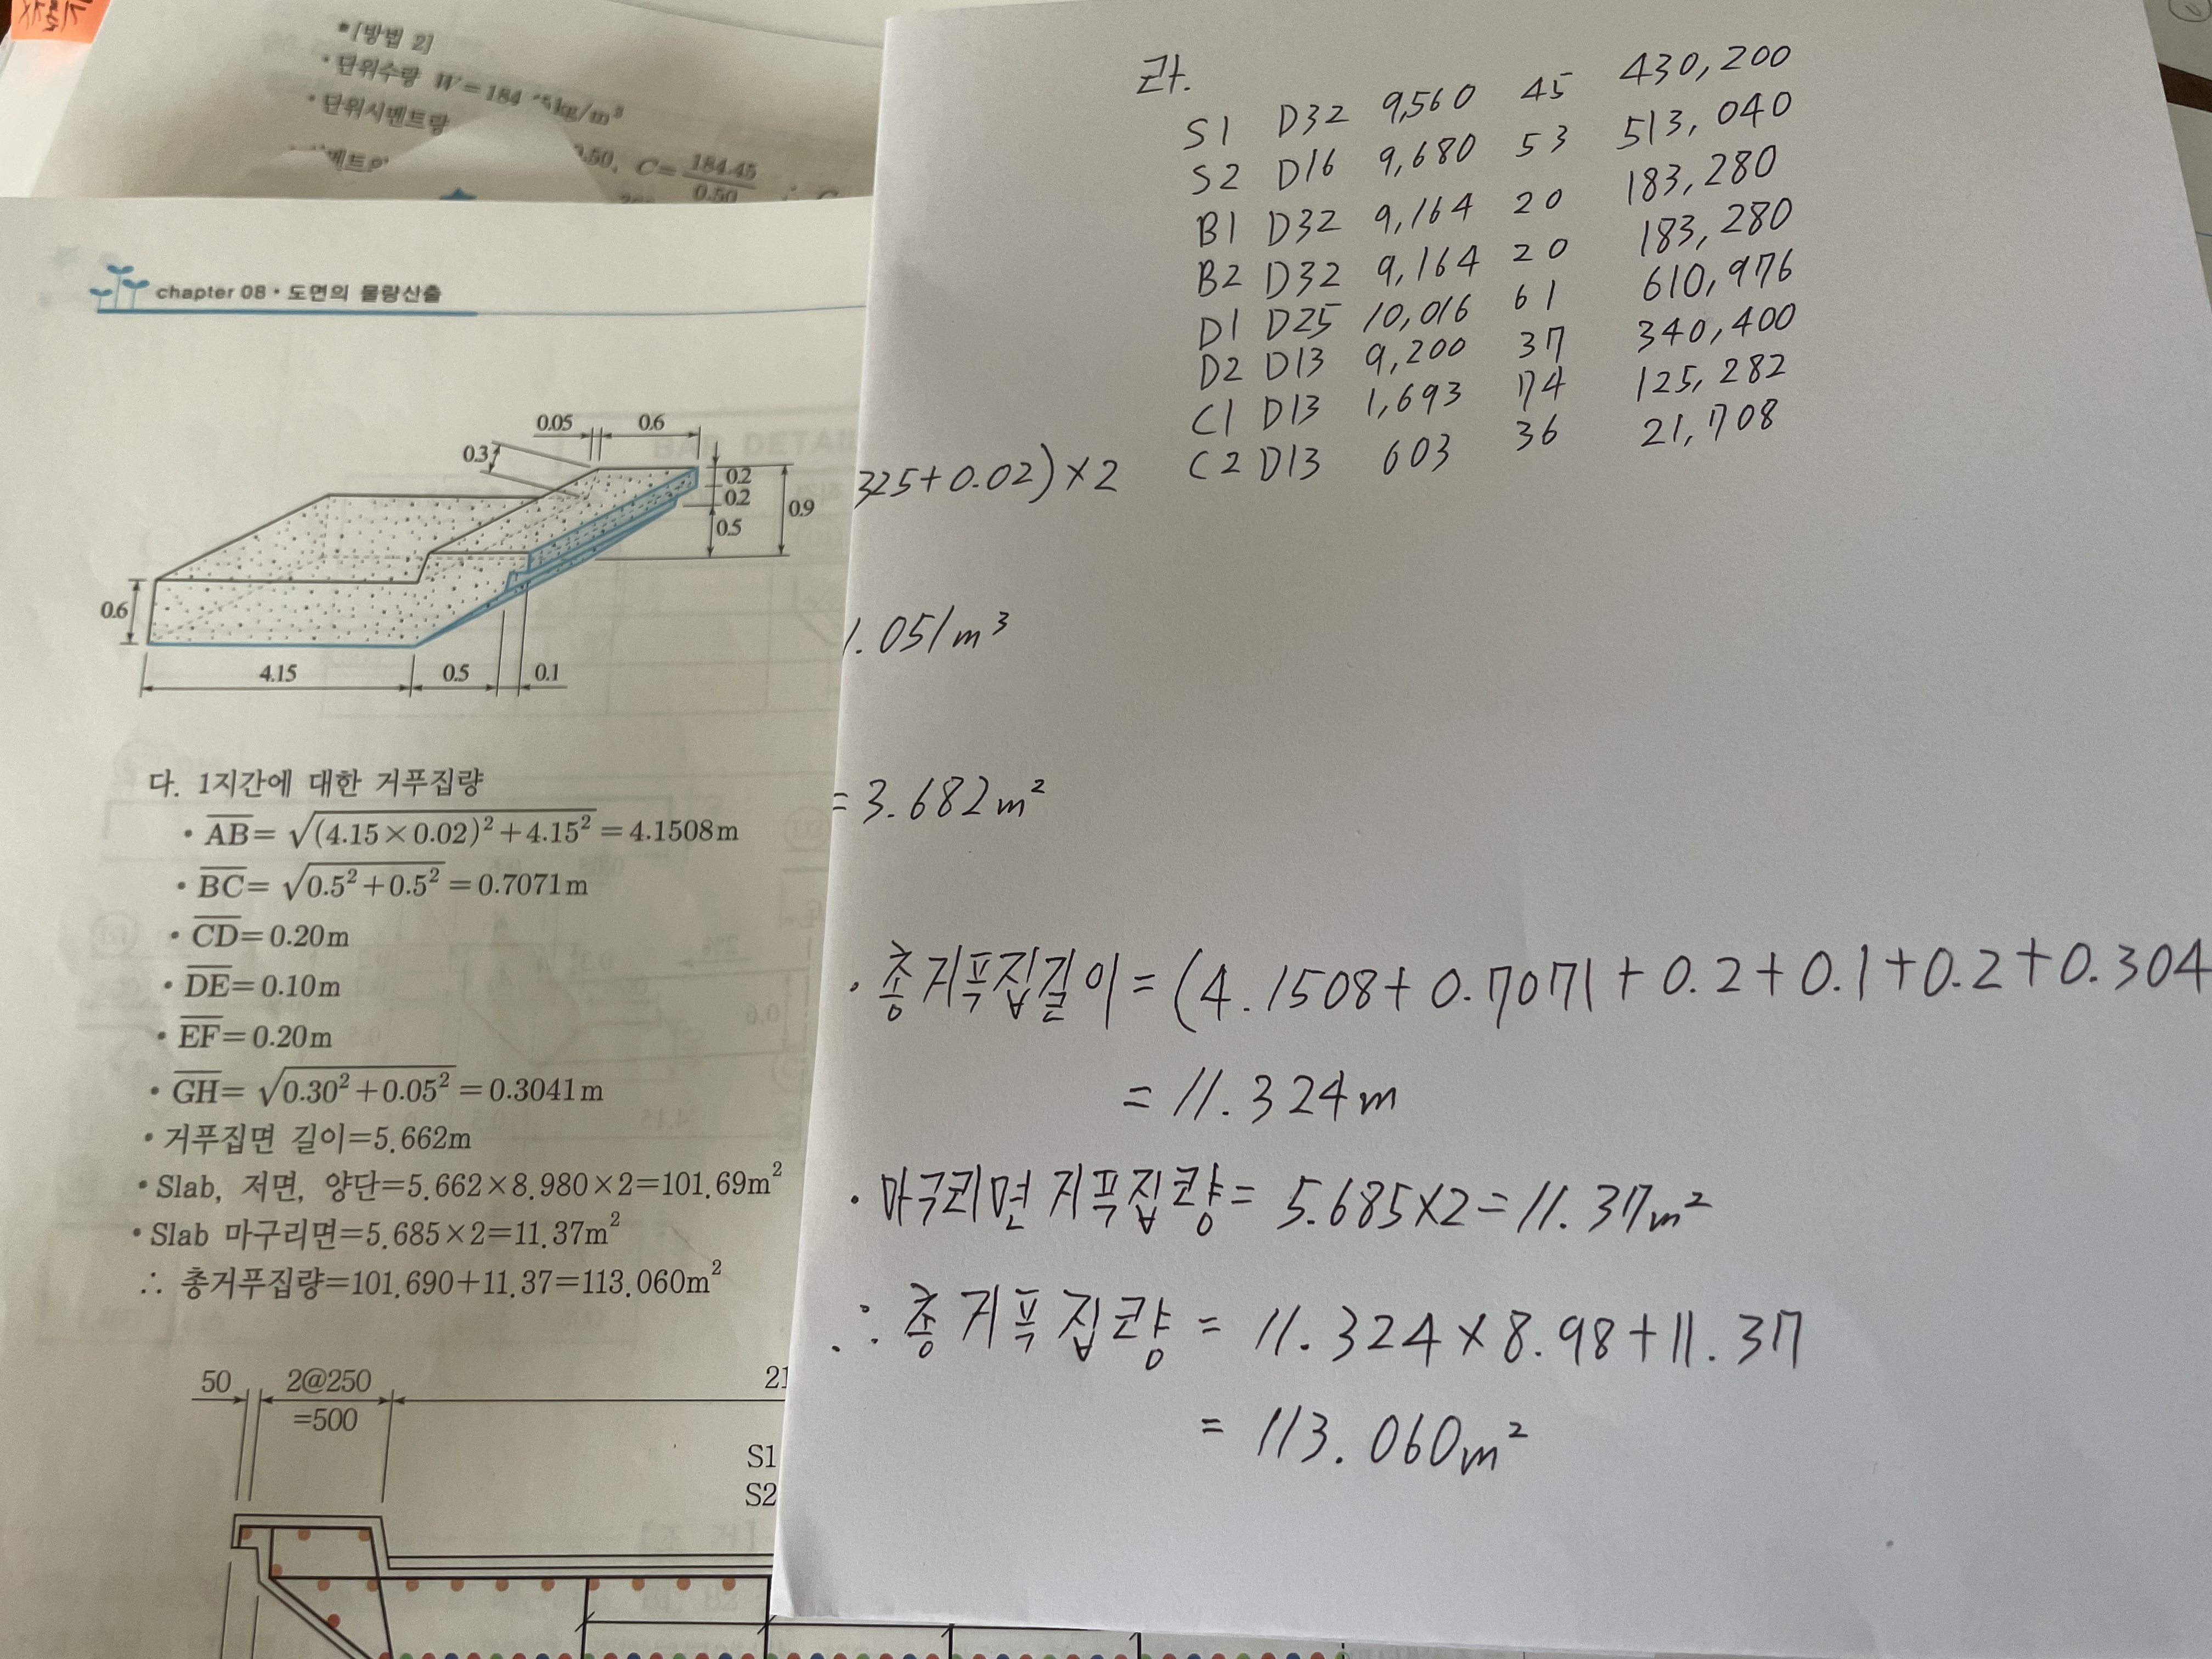 •[방법 2]
• 단위수량 W=184.45kg/m³
• 단위시멘트량
0.50, C=184.45/0.50 ∴
chapter 08 • 도면의 물량산출
0.05 0.6
0.3
0.2
0.2
0.9
0.5
0.6
4.15 0.5 0.1
다. 1지간에 대한 거푸집량
• AB=√((4.15×0.02)²+4.15²)=4.1508m
• BC=√(0.5²+0.5²)=0.7071m
• CD=0.20m
• DE=0.10m
• EF=0.20m
• GH=√(0.30²+0.05²)=0.3041m
• 거푸집면 길이=5.662m
• Slab, 저면, 양단=5.662×8.980×2=101.69m²
• Slab 마구리면=5.685×2=11.37m²
∴ 총거푸집량=101.690+11.37=113.060m²
50 2@250 21
=500
S1
S2
라.
S1 D32 9,560 45 430,200
S2 D16 9,680 53 513,040
B1 D32 9,164 20 183,280
B2 D32 9,164 20 183,280
D1 D25 10,016 61 610,976
D2 D13 9,200 37 340,400
C1 D13 1,693 74 125,282
C2 D13 603 36 21,708
325+0.02)×2
1.051m³
= 3.682m²
• 총거푸집길이=(4.1508+0.7071+0.2+0.1+0.2+0.304
= 11.324m
• 마구리면 거푸집량= 5.685×2=11.37m²
∴ 총 거푸집량 = 11.324×8.98+11.37
= 113.060m²